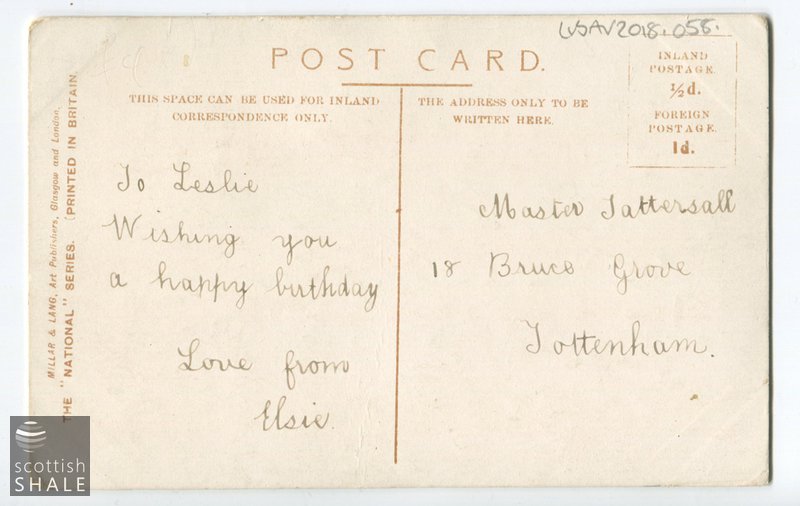 LVSAV2018.058.
POST CARD.
THIS SPACE CAN BE USED FOR INLAND
CORRESPONDENCE ONLY.
THE ADDRESS ONLY TO BE
WRITTEN HERE.
INLAND
POSTAGE
½d.
FOREIGN
POSTAGE.
1d.
MILLAR & LANG, Art Publishers, Glasgow and London.
THE "NATIONAL" SERIES. (PRINTED IN BRITAIN.
To Leslie
Wishing you
a happy birthday
Love from
Elsie.
Master Tattersall
18 Bruce Grove
Tottenham.
scottish
SHALE